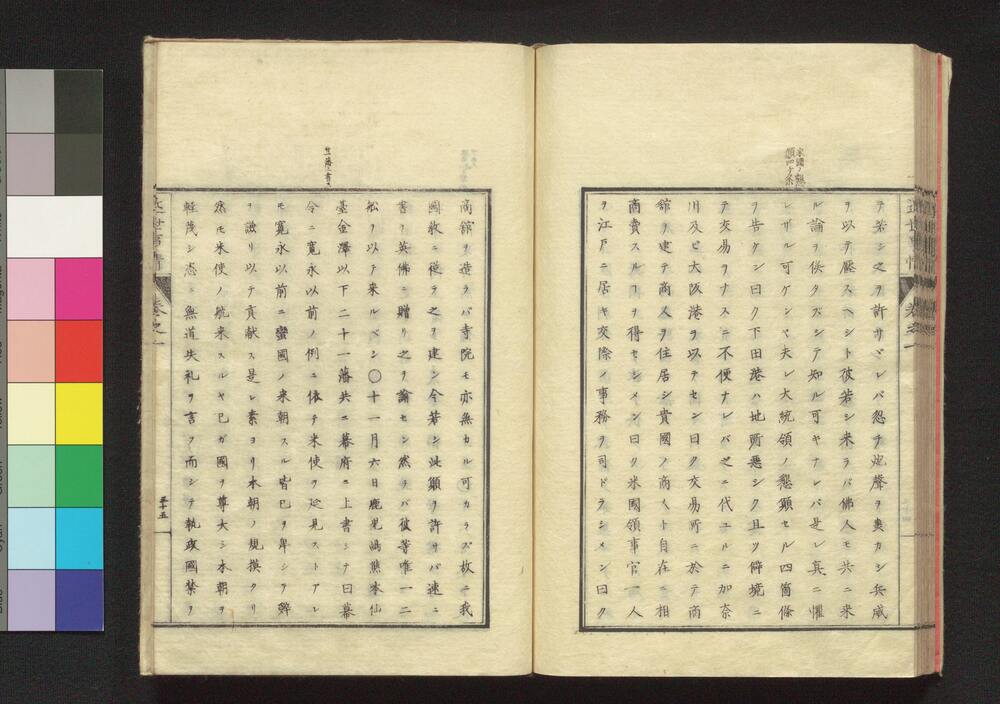 テ若シ之ヲ許サヾレバ忽チ炮聲ヲ奥カシ兵威
ヲ以テ壓スヘシト彼若シ来ラバ佛人モ共ニ来
ル論ヲ俟タズシテ知ル可キナレバ是レ真ニ懼
レザル可ケンヤ夫レ大統領ノ懇願セル四箇條
ヲ告ケン曰ク下田港ハ地所悪シク且ツ僻境ニ
テ交易ヲナスニ不便ナレバ之ニ代ユルニ加奈
川及ビ大阪港ヲ以テセン曰ク交易所ニ於テ商
舘ヲ建テ商人ヲ住居シ貴國ノ商人ト自在ニ相
商賣スルヿヲ得セシメン曰ク米國領事官一人
ヲ江戸ニ居キ交際ノ事務ヲ司ドラシメン曰ク
米國ノ懇
願四ケ条
近世事情
巻之一
商舘ヲ造ラバ寺院モ亦無カル可カラズ故ニ我
國教ニ従テ之ヲ建ン今若シ此願ヲ許サバ速ニ
書ヲ英佛ニ贈リ之ヲ論セン然ラバ彼等唯一二
舩ヲ以テ来ルベシ〇十一月六日鹿児嶋熊本仙
臺金澤以下二十一藩共ニ幕府ニ上書シテ曰幕
令ニ寛永以前ノ例ニ依テ米使ヲ延見ストアレ
モ寛永以前ニ蛮國ノ来朝スル皆已ヲ卑シヲ辞
ヲ遜リ以テ貢献ス是レ素ヨリ本朝ノ規摸タリ
然モ米使ノ航来スルヤ已ガ國ヲ尊大シ本朝ヲ
軽茂シ恣ニ無道失礼ヲ言フ而シテ執政國禁ヲ
廿一藩上書ス
近世事情
巻之一
五十五